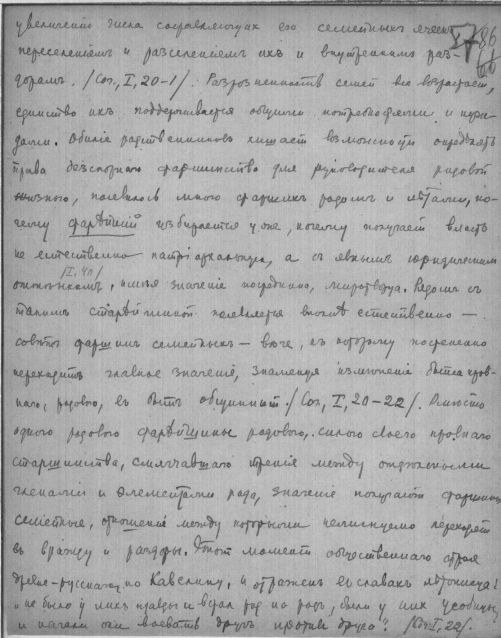 увеличенію числа составляющихъ его семейныхъ ячеекъ,
переселеніемъ и разселеніемъ ихъ и внутреннимъ раз-
доромъ. /Соч, I, 20-1/. Разрозненность семей все возрастаетъ,
единство ихъ поддерживается общими потребностями и нуж-
дами. Обиліе родственниковъ лишаетъ возможности опредѣлять
права безспорнаго старшинства для руководителя родовой
жизнью, появилось много старшихъ родомъ и лѣтами, по-
чему старѣйшій избирается уже, почему получаетъ власть
не естественно патріархальную, а съ явнымъ юридическимъ
/I, 40/
оттѣнкомъ, имѣя значеніе посредника, миротворца. Рядомъ съ
такимъ старѣйшиной появляется вполнѣ естественно —
совѣтъ старшинъ семейныхъ — вѣче, къ которому постепенно
переходитъ главное значеніе, знаменуя измѣненіе быта кров-
наго, родового, въ бытъ общинный /Соч, I, 20-22/. Вмѣсто
одного родового старѣйшины родового, силою своего кровнаго
старшинства, смягчавшаго тренія между отдѣльными
членами и элементами рода, значеніе получаютъ старшины
семейные, отношенія между которыми неминуемо переходятъ
въ вражду и раздоры. Этотъ моментъ общественнаго строя
древне-русскаго, по Кавелину, и отраженъ въ словахъ лѣтописца:
"не было у нихъ правды и всталъ родъ на родъ, были у нихъ усобицы
и начали они воевать другъ противъ друга". /Соч I, 22/.
86